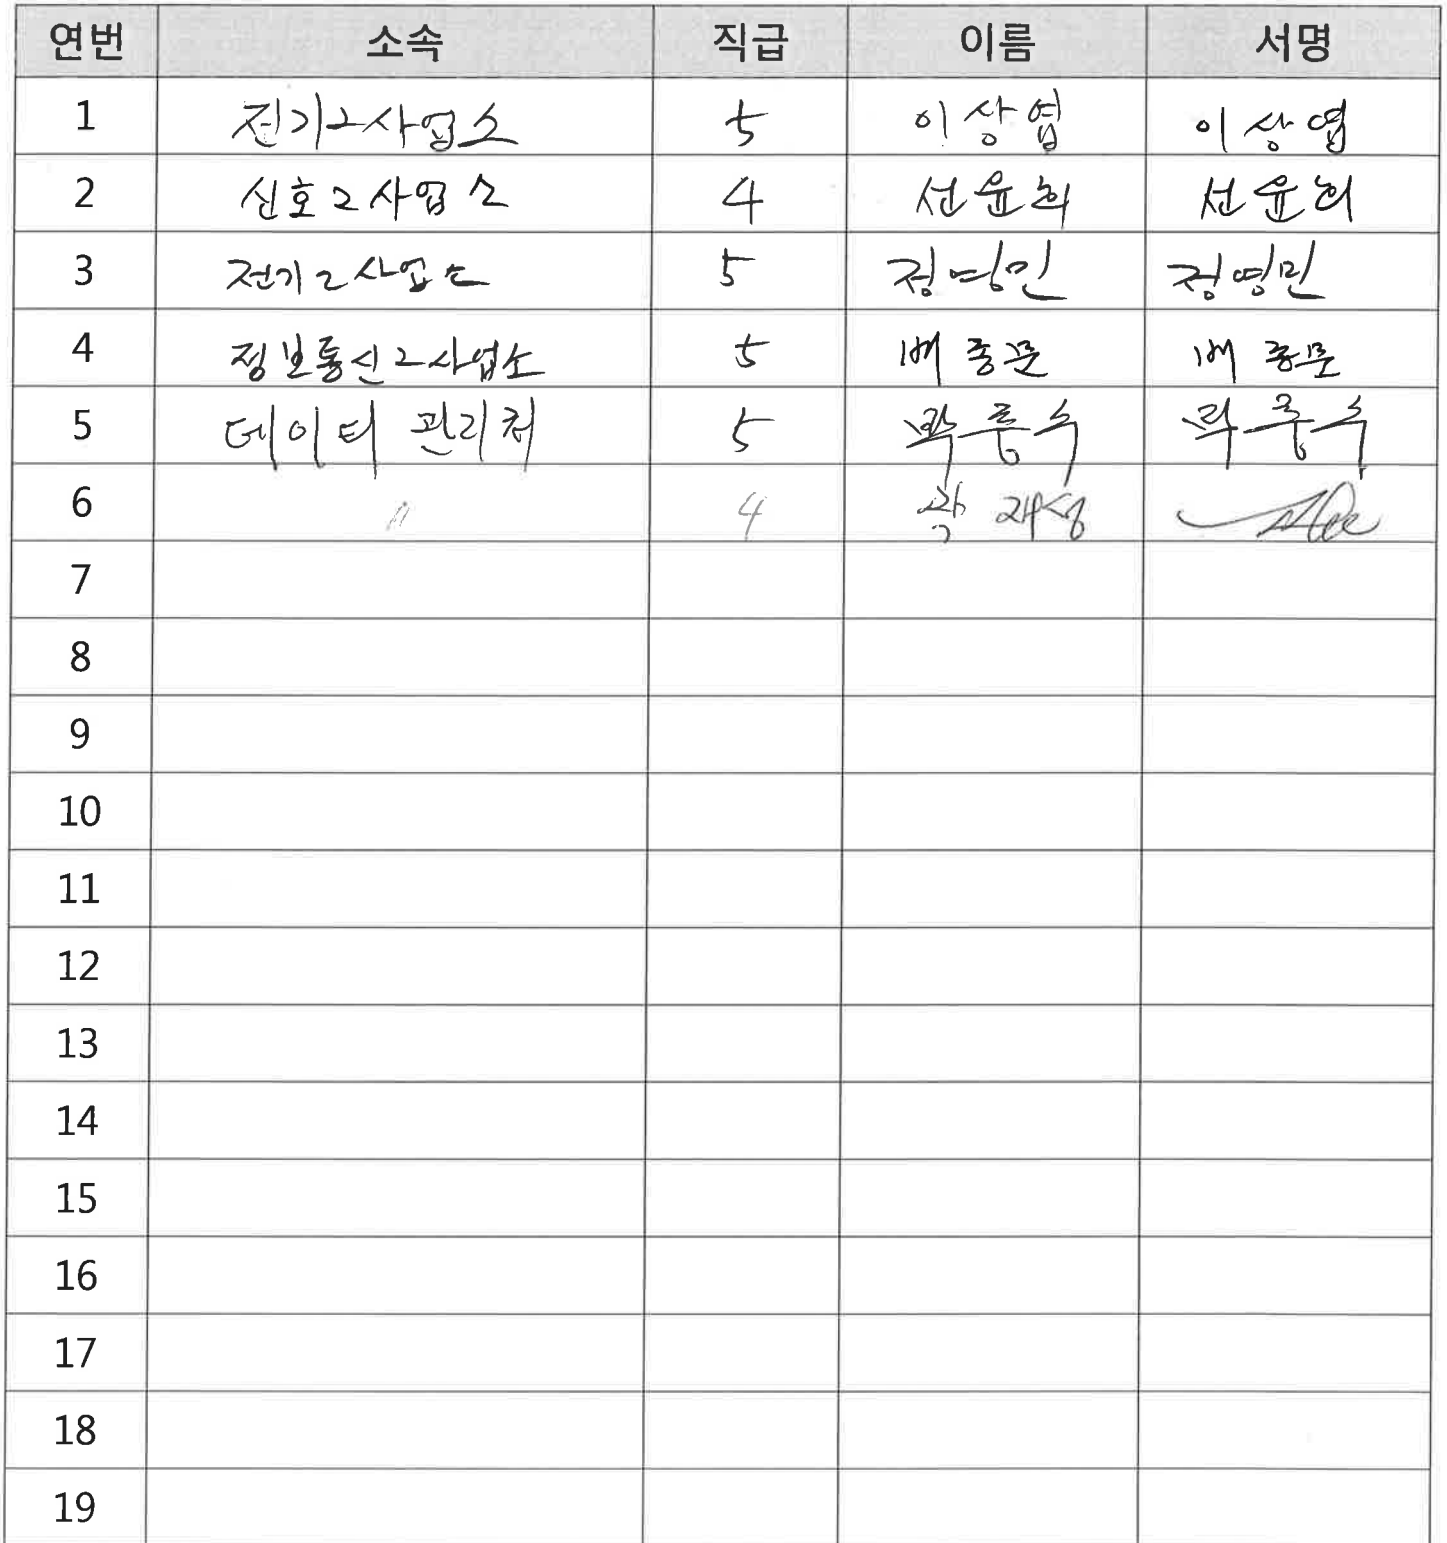 연번 소속 직급 이름 서명
1 전기2사업소 5 이상엽 이상엽
2 신호2사업소 4 선윤희 선윤희
3 전기2사업소 5 정영민 정영민
4 정보통신2사업소 5 배종문 배종문
5 데이터 관리처 5
6 〃 4
7
8
9
10
11
12
13
14
15
16
17
18
19